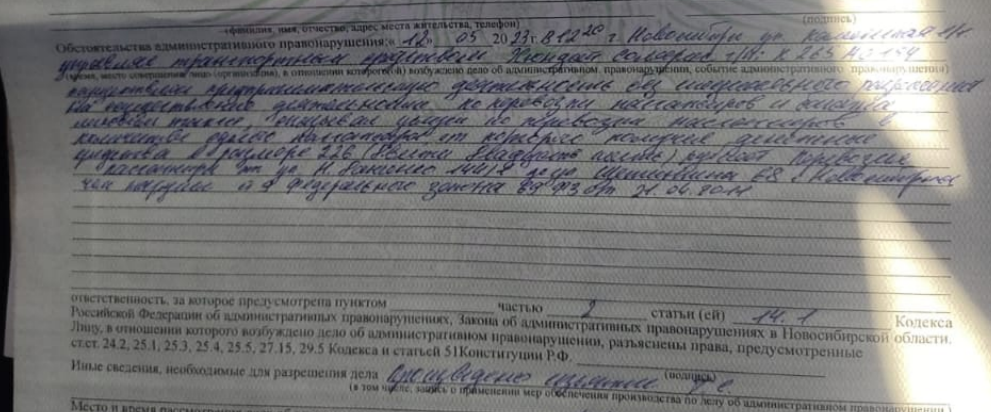 (фамилия, имя, отчество, адрес места жительства, телефон)
(подпись)
Обстоятельства административного правонарушения: «12» 05 2023 г. в 12 20 г Новосибирск ул.
управляя транспортным средством Хендай Солярис г/н
(время, место совершения лицо (организация), в отношении которого(й) возбуждено дело об административном правонарушении, событие административного правонарушения)
предпринимательскую деятельность без специального разрешения
на осуществление деятельности по перевозки пассажиров и багажа
легковым такси, оказывал услуги по перевозки пассажиров в
количестве одного пассажира от которого получил денежные
средства в размере 226 (Двести Двадцать шесть) рублей перевозил
пассажира от ул.
чем нарушил ст 9 Федерального закона 69 ФЗ от 21.04.2011
ответственность, за которое предусмотрена пунктом частью 2 статьи (ей) 14.1 Кодекса
Российской Федерации об административных правонарушениях, Закона об административных правонарушениях в Новосибирской области.
Лицу, в отношении которого возбуждено дело об административном правонарушении, разъяснены права, предусмотренные
ст.ст. 24.2, 25.1, 25.3, 25.4, 25.5, 27.15, 29.5 Кодекса и статьей 51Конституции Р.Ф.
(подпись)
Иные сведения, необходимые для разрешения дела произведено изъятие
(в том числе, запись о применении мер обеспечения производства по делу об административном правонарушении)
Место и время